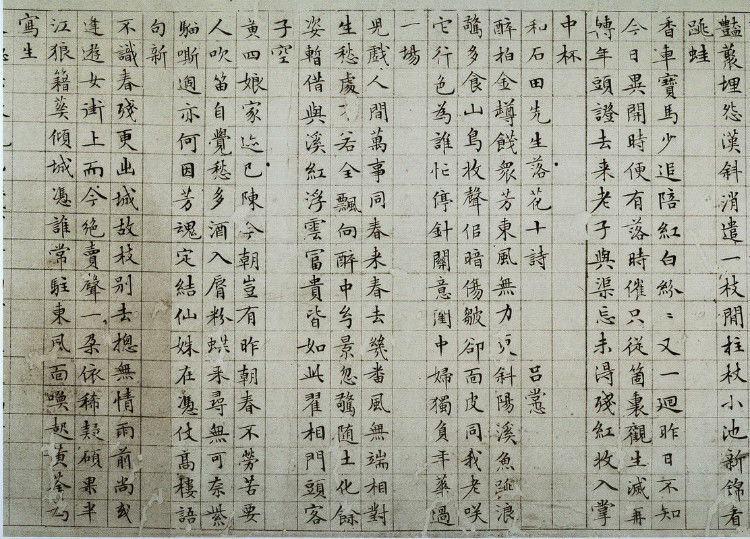 豔蓑埋怨漢斜消遣一枝閒柱杖小池新錦看
跳蛙
香車寶馬少追陪紅白紛〻又一迴昨日不知
今日異開時便有落時催只從箇裏觀生滅再
轉年頭證去来老子與渠忘未得殘紅收入掌
中杯
和石田先生落花十詩 呂㦂
醉拍金罇餞衆芳東風無力斜陽溪魚跳浪
驚多食山鳥收聲侣暗傷皺卻面皮同我老咲
它行色為誰忙停針關意閨中婦獨負年華過
一場
兒戲人間萬事同春来春去幾番風無端相對
生愁處若全飄向醉中兮景忽驚随土化餘
姿暫借與溪紅浮雲富貴皆如此翟相門頭客
子空
黄四娘家迹已陳今朝豈有昨朝春不勞苦要
人吹笛自覺愁多酒入脣粉蝶来尋無可奈紫
騮嘶過亦何因芳魂定結仙姝在憑仗髙樓語
句新
不識春殘更出城故枝别去摠無情雨前尚或
逢遊女街上而今絶賣聲一朶依稀疑碩果半
江狼籍葬傾城憑誰常駐東風面喚起黄荃為
寫生